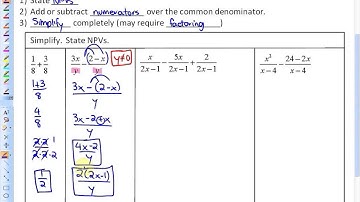 1) State NPVs
2) Add or subtract numerators over the common denominator.
3) Simplify completely (may require factoring)
Simplify. State NPVs.
1/8 + 3/8
1+3/8
4/8
2·2 1/2·2·2
1/2
3x/y - (2-x)/y y≠0
3x-(2-x)/y
3x-2+x/y
4x-2/y
2(2x-1)/y
x/2x-1 - 5x/2x-1 + 2/2x-1
x²/x-4 - 24-2x/x-4